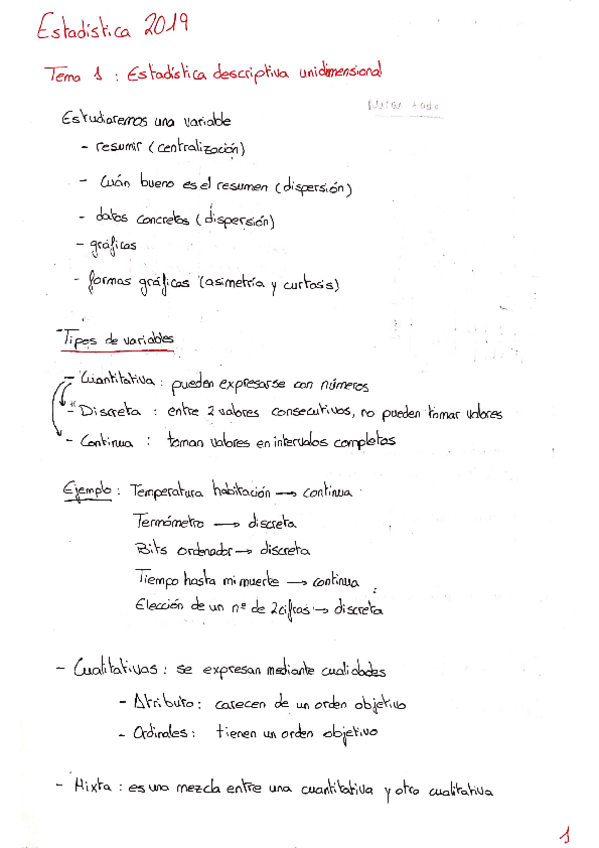 Estadística 2019
Tema 1 : Estadística descriptiva unidimensional
Estudiaremos una variable
- resumir (centralización)
- Cuán bueno es el resumen (dispersión)
- datos concretos (dispersión)
- gráficas
- formas gráficas (asimetría y curtosis)
Tipos de variables
- Cuantitativa : pueden expresarse con números
- Discreta : entre 2 valores consecutivos, no pueden tomar valores
- Continua : toman valores en intervalos completos
Ejemplo : Temperatura habitación → continua
Termómetro → discreta
Bits ordenador → discreta
Tiempo hasta mi muerte → continua
Elección de un nº de 2 cifras → discreta
- Cualitativas : se expresan mediante cualidades
- Atributo : carecen de un orden objetivo
- Ordinales : tienen un orden objetivo
- Mixta : es una mezcla entre una cuantitativa y otra cualitativa
1